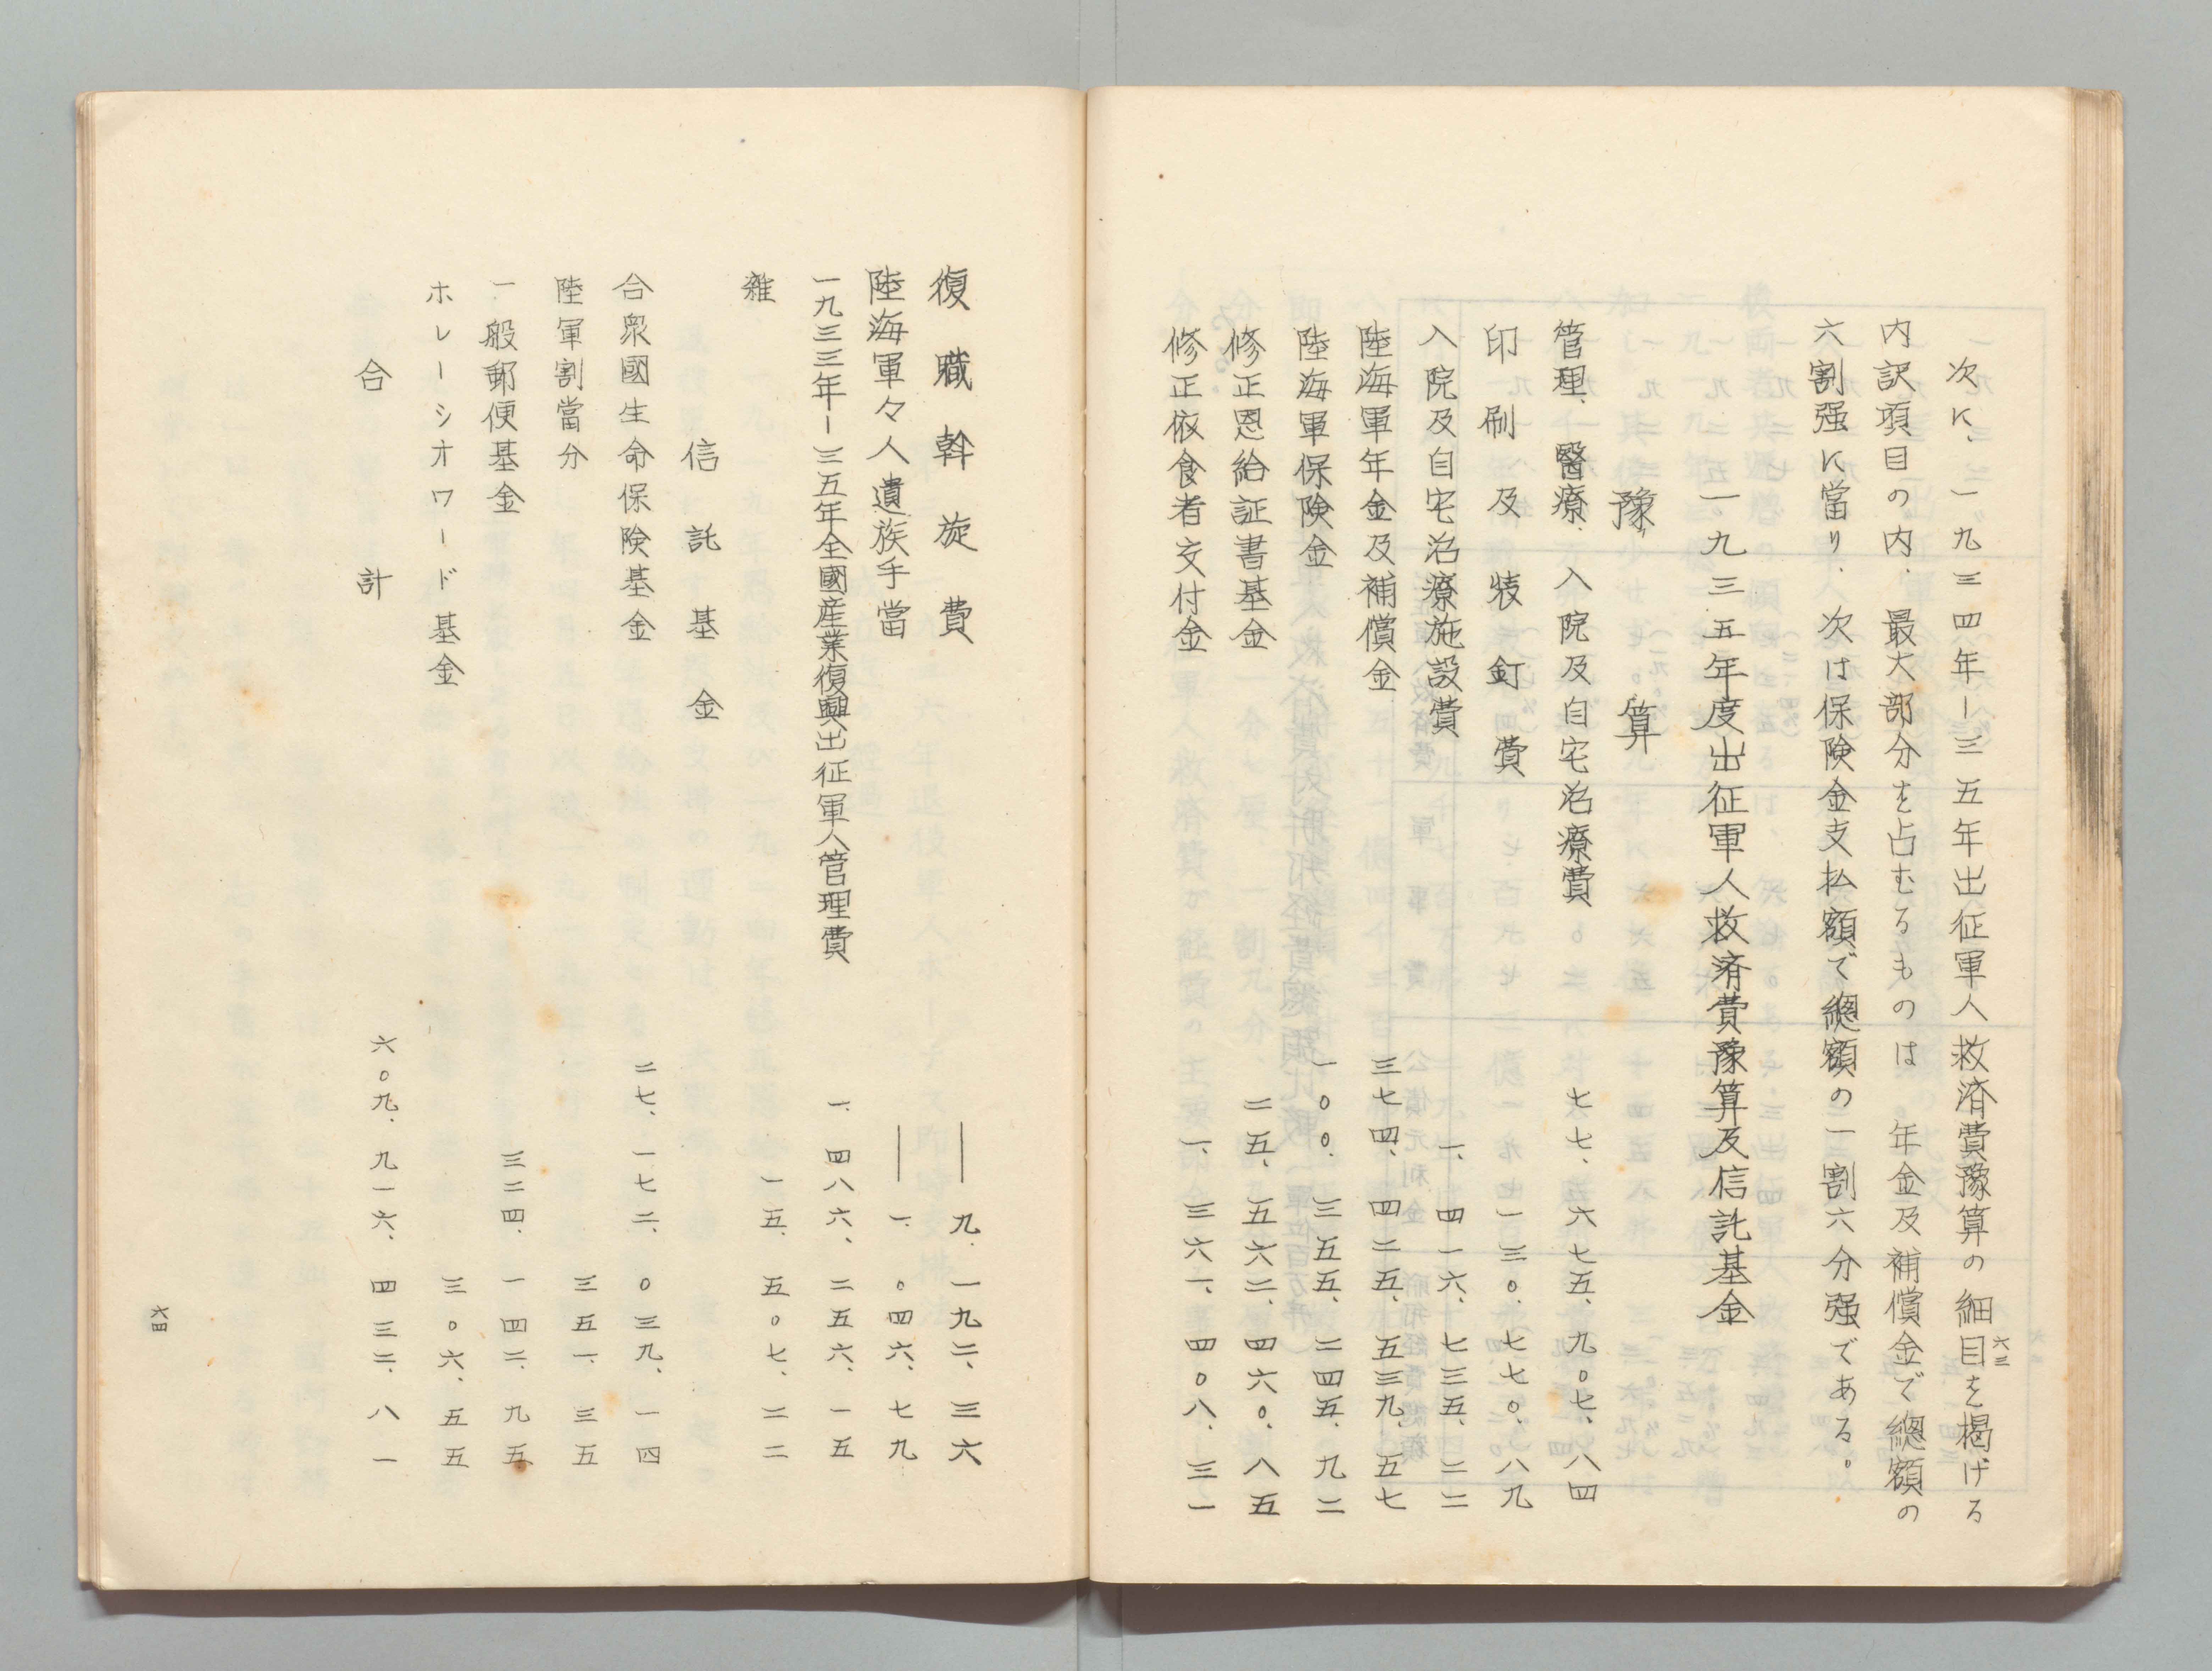 六三
次に、一九三四年ー三五年出征軍人救済費豫算の細目を掲げる
内訳項目の内、最大部分を占むるものは 年金及補償金で總額の
六割强に當り、次は保険金支払額で總額の一割六分强である。
一九三五年度出征軍人救済費豫算及信託基金
豫算
管理、醫療、入院及自宅治療費 七七、六七五、九〇七、八四
印刷及装釘費 一三〇、七七〇、八九
入院及自宅治療施設費 一、四一六、七三五、二二
陸海軍年金及補償金 三七四、四二五、五三九、五七
陸海軍保険金 一〇〇、三五五、二四五、九二
修正恩給証書基金 二五、五六二、四六〇、八五
修正依食者交付金 一、三六一、四〇八、三一
復職斡旋費 ー九、一九二、三六
陸海軍々人遺族手當 ー一、〇四六、七九
一九三三年ー三五年全國産業復興出征軍人管理費 一、四八六、二五六、一五
雜 一五、五〇七、二二
信託基金
合衆國生命保険基金 二七、一七二、〇三九、一四
陸軍割當分 三五一、三五
一般郵便基金 三二四、一四二、九五
ホレーシオワード基金 三〇六、五五
合計 六〇九、九一六、四三二、八一
六四